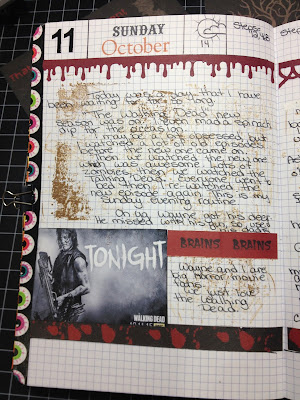 11
SUNDAY
October
14
Steps:
Today was a day that I have
been waiting for for so long.
The Walking Dead new
season was on. I even made spinach
dip for the occasion.
I may be a bit obsessed but
I watched a lot of old episodes
before the new one came on.
Then we watched the new one
which was awesome. Lots of
zombies, then we watched the
Talking Dead. Everyone went to
bed and I re-watched the
new episode again. This is my
Sunday evening routine.
Oh ya, Wayne got his deer.
He missed with his gun so used
TONIGHT
THE WALKING DEAD
BRAINS BRAINS
Wayne and I are
big horror movie
fans.
We just love
the Walking
Dead.